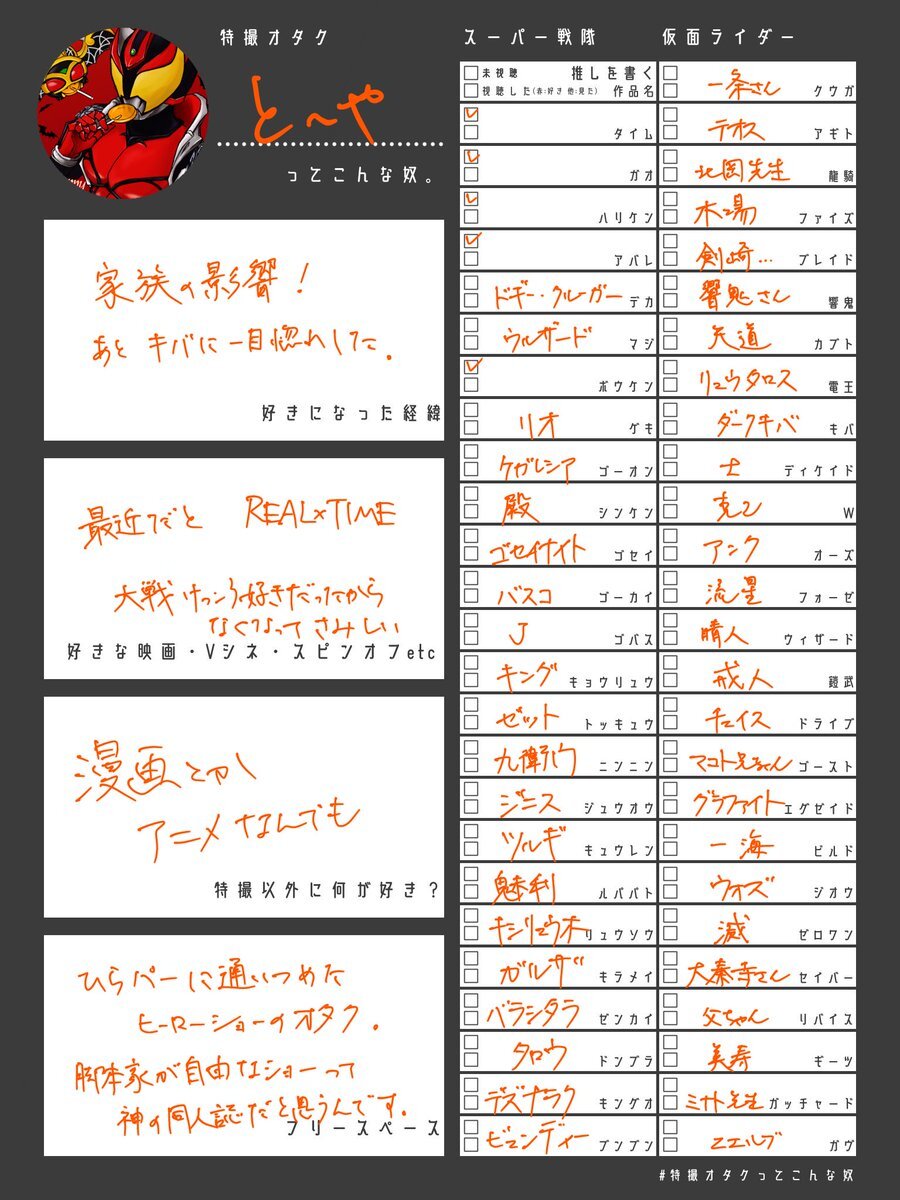 特撮オタク
と〜や
ってこんな奴。
家族の影響！
あと キバに一目惚れした。
好きになった経緯
最近だと REAL×TIME
大戦けっこう好きだったから
なくなってさみしい
好きな映画・Vシネ・スピンオフetc
漫画とか
アニメなんでも
特撮以外に何が好き？
ひらパーに通いつめた
ヒーローショーのオタク。
脚本家が自由なショーって
神の同人誌だと思うんです。
フリースペース
スーパー戦隊
未視聴 推しを書く
視聴した(赤:好き 他:見た) 作品名
タイム
ガオ
ハリケン
アバレ
ドギー・クルーガー デカ
ウルザード マジ
ボウケン
リオ ゲキ
ケガレシア ゴーオン
殿 シンケン
ゴセイナイト ゴセイ
バスコ ゴーカイ
J ゴバス
キング キョウリュウ
ゼット トッキュウ
九衛門 ニンニン
ジニス ジュウオウ
ツルギ キュウレン
魁利 ルパパト
キシリュウオー リュウソウ
ガルザ キラメイ
バラシタラ ゼンカイ
タロウ ドンブラ
デズナラク キングオ
ビュンディー ブンブン
仮面ライダー
一条さん クウガ
テオス アギト
北岡先生 龍騎
木場 ファイズ
剣崎… ブレイド
響鬼さん 響鬼
天道 カブト
リュウタロス 電王
ダークキバ キバ
士 ディケイド
克己 W
アンク オーズ
流星 フォーゼ
晴人 ウィザード
戒人 鎧武
チェイス ドライブ
マコト兄ちゃん ゴースト
グラファイト エグゼイド
一海 ビルド
ウォズ ジオウ
滅 ゼロワン
大秦寺さん セイバー
父ちゃん リバイス
美寿 ギーツ
ミナト先生 ガッチャード
ニエルブ ガヴ
#特撮オタクってこんな奴